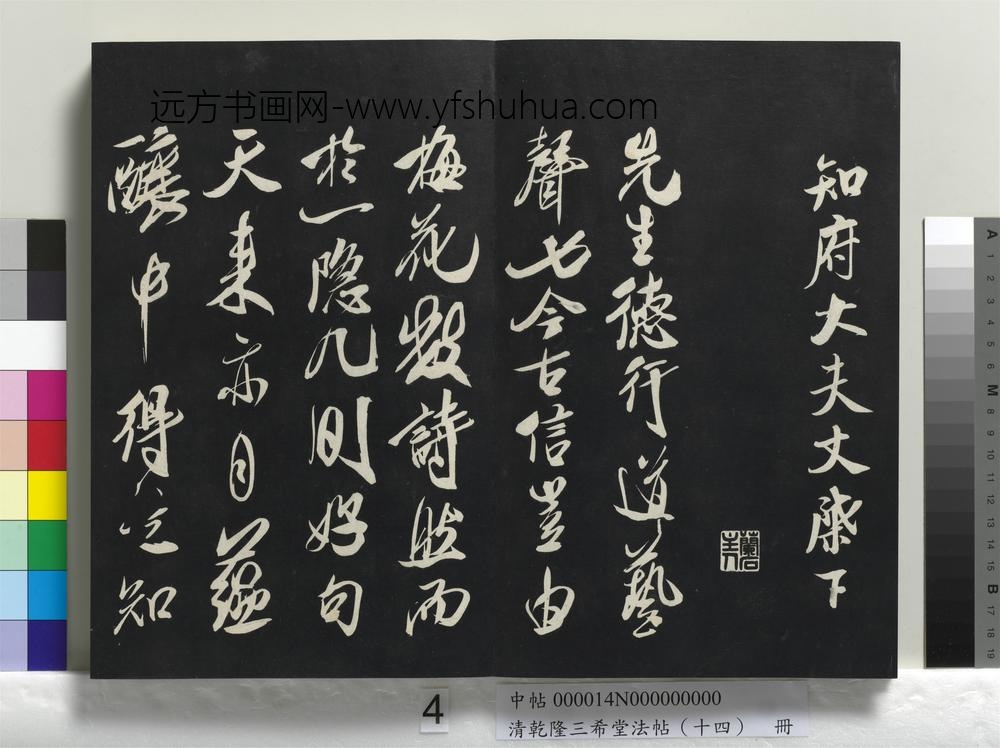 远方书画网-www.yfshuhua.com
知府大夫丈棨下
先生德行道藝
聲今古信豈由
梅花數詩然而
於一隱几間好句
天来亦自蘊
釀中得知
4
中帖 000014N000000000
清乾隆三希堂法帖（十四） 冊